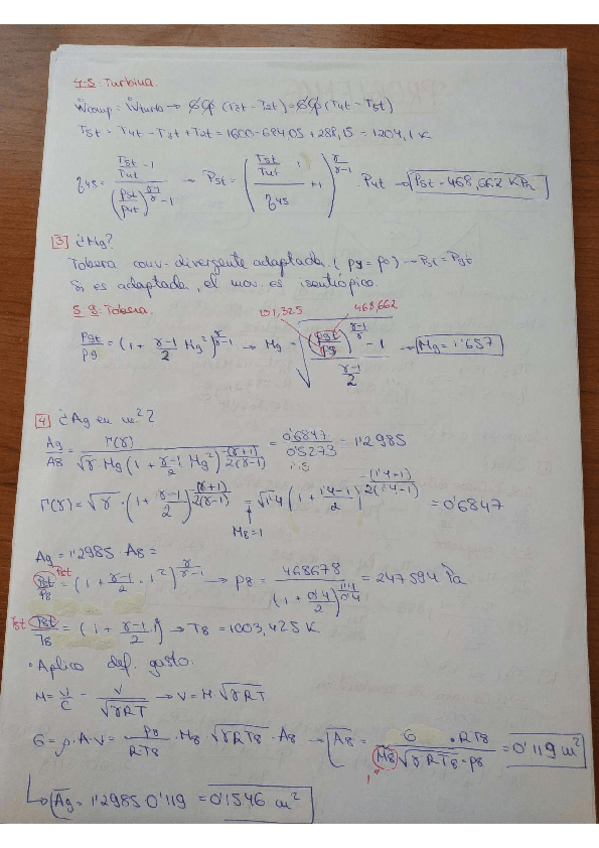 4-5: Turbina.
Ẇcomp = Ẇturb → G cp (T3t - T2t) = G cp (T4t - T5t)
T5t = T4t - T3t + T2t = 1600 - 684,05 + 288,15 = 1204,1 K
η45 = (T5t/T4t - 1) / ((p5t/p4t)^(γ-1/γ) - 1) → P5t = ((T5t/T4t - 1)/η45 + 1)^(γ/γ-1) · P4t → P5t = 468,662 KPa
[3] ¿M9?
Tobera conv-divergente adaptada. (p9 = p0) → P5t = P9t
Si es adaptada, el mov. es isentrópico.
5-9: Tobera.
101,325 468,662
P9t/P9 = (1 + γ-1/2 M9²)^(γ/γ-1) → M9 = √(((P9t/P9)^(γ-1/γ) - 1) / (γ-1/2)) → M9 = 1'657
[4] ¿A9 en m²?
A9/A8 = Γ(γ) / (√γ · M9 (1 + γ-1/2 M9²)^(-(γ+1)/2(γ-1))) = 0'6847/0'5273 = 1'2985
Γ(γ) = √γ · (1 + γ-1/2)^(-(γ+1)/2(γ-1)) = √1'4 (1 + 1'4-1/2)^(-(1'4+1)/2(1'4-1)) = 0'6847
M8=1
A9 = 1'2985 · A8 =
P8t P5t / P8 = (1 + γ-1/2 · 1²)^(γ/γ-1) → p8 = 468678 / (1 + 0'4/2)^(1'4/0'4) = 247594 Pa
T5t T8t / T8 = (1 + γ-1/2 · 1) → T8 = 1003,425 K
· Aplico def. gasto.
M = V/C = V/√γRT → V = M √γRT
G = ρ·A·V = P8/RT8 · M8 √γRT8 · A8 → A8 = G · RT8 / (M8 √γRT8 · p8) = 0'119 m²
1
↳ A9 = 1'2985 · 0'119 = 0'1546 m²